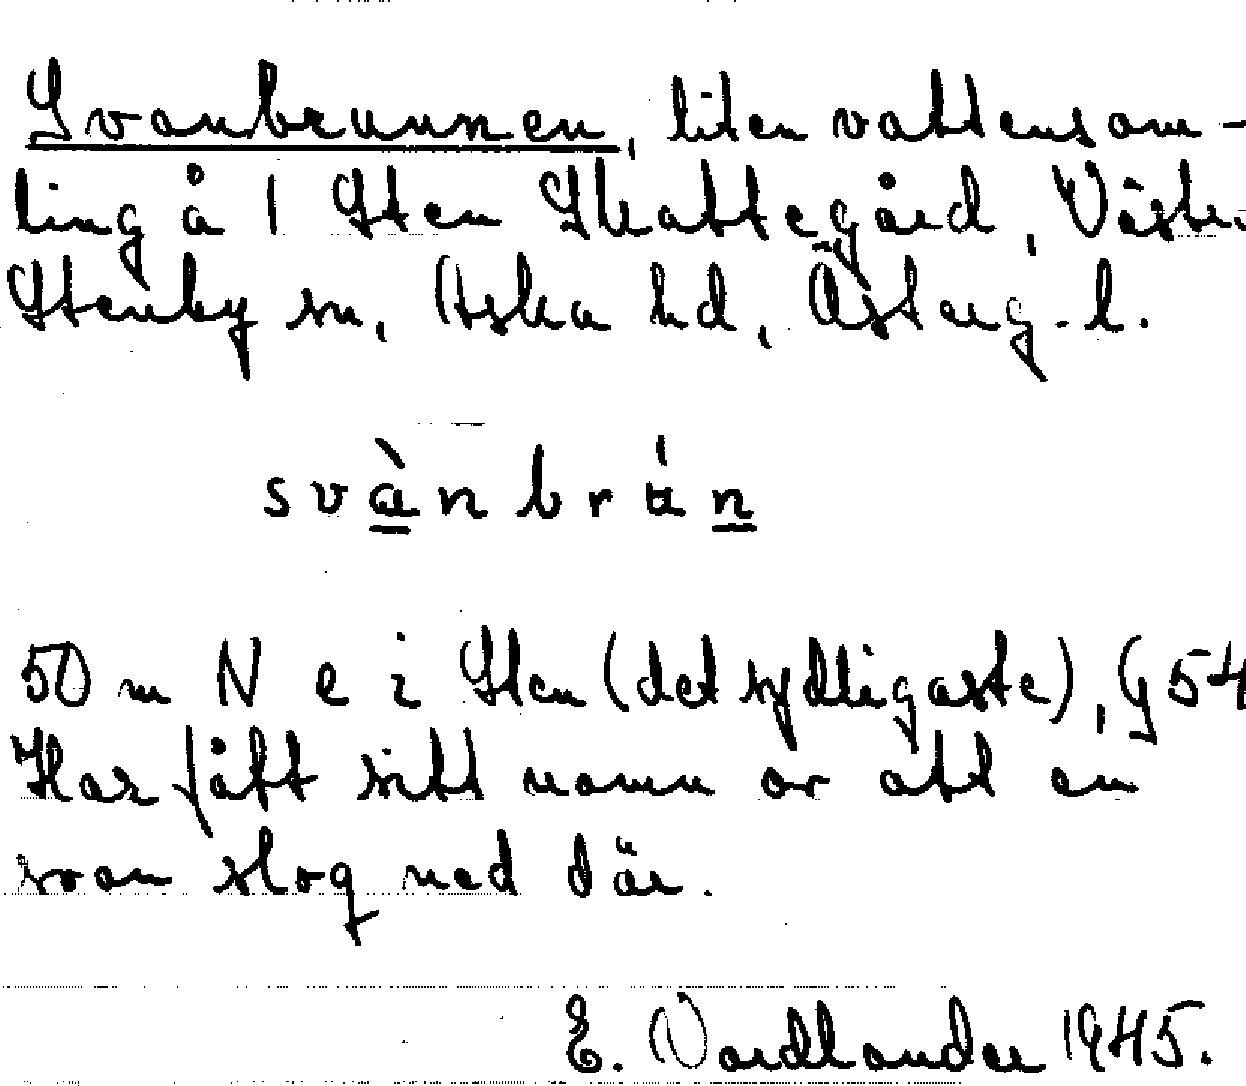 Svanbrunnen, liten vattensam-
ling å 1 Sten Skattegård, Väster
Stenby sn, Aska hd, Österg. l.
svànbrún
50 m N e i Sten (det sydligaste), G 54
Har fått sitt namn av att en
svan slog ned där.
E. Nordlander 1945.